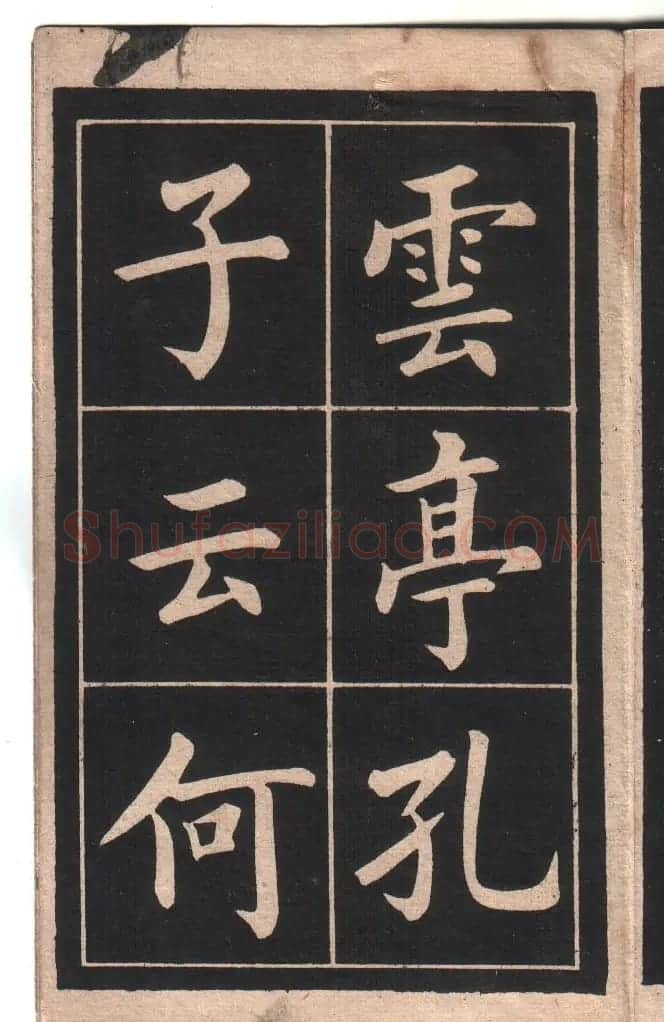 雲亭孔
子云何
Shufaziliao.COM